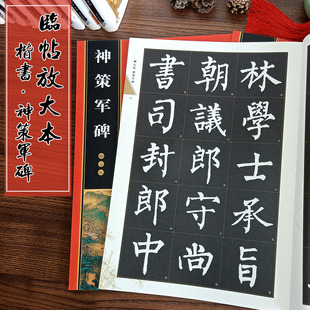 臨帖放大本
楷書·神策军碑
神策军碑
林學士承旨
朝議郎守尚
書司封郎中